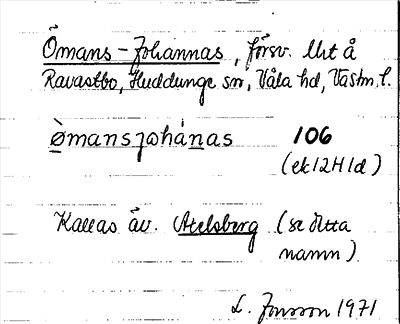 Ömans-Johannas, försv. lht å
Ravastbo, Huddunge sn, Våla hd, Västm. l.
òmansjohánas 106
(ek 12H1d)
Kallas äv. Atelsberg (se detta
namn)
L. Jonsson 1971